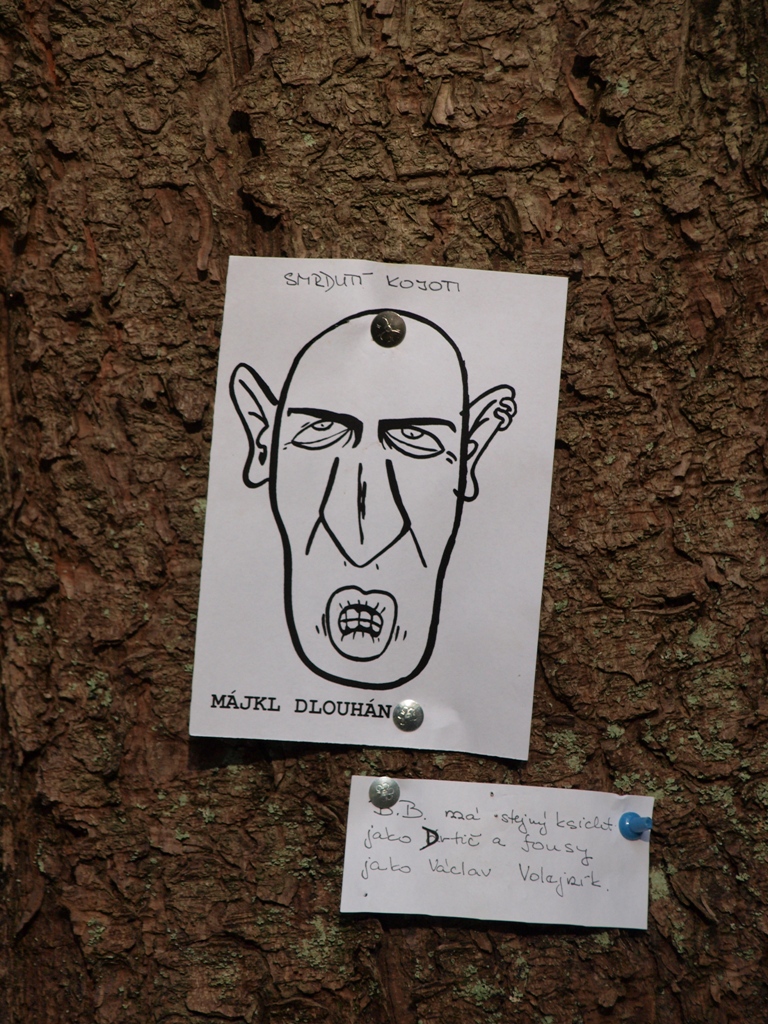 SMRDUTÍ KOJOTI
MÁJKL DLOUHÁN
B.B. má stejný ksicht
jako Drtič a fousy
jako Václav Volejník.